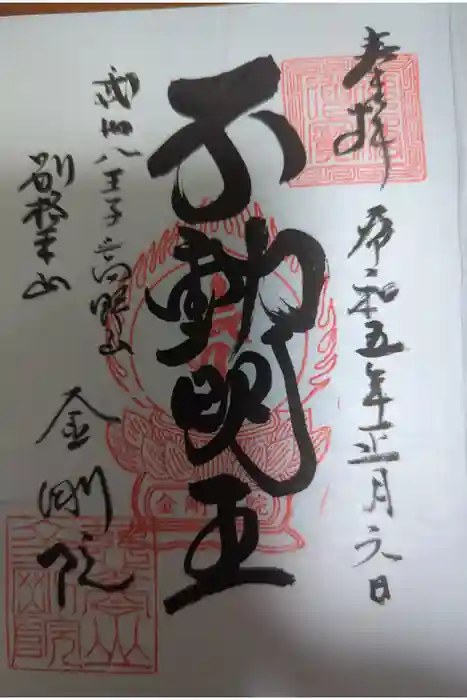 奉拝
令和五年正月六日
不動明王
武州八王子高野山
別格本山
金剛院
金剛院